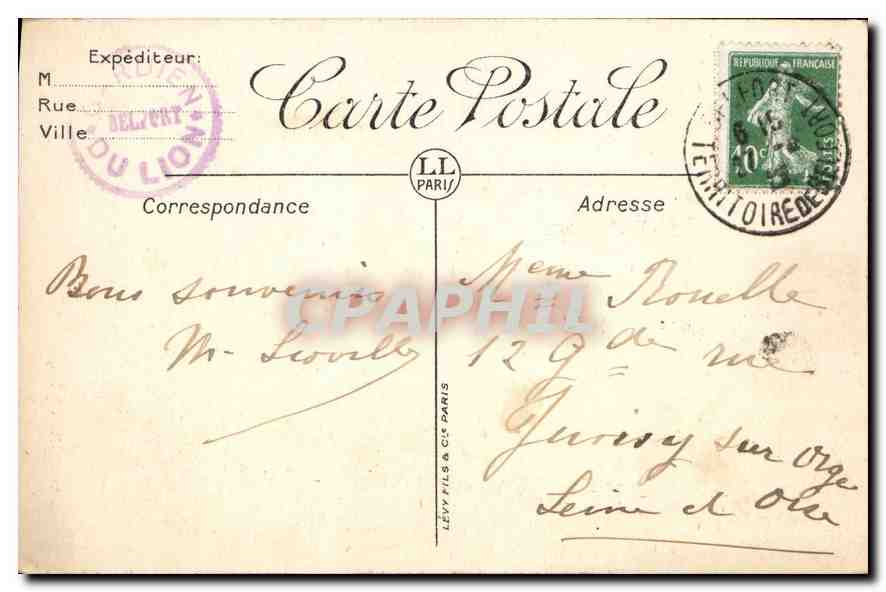 Expéditeur:
M
Rue
Ville
GARDIEN
BELFORT
DU LION
Carte Postale
RÉPUBLIQUE FRANÇAISE
10c
BELFORT
6 15
TERRITOIRE DE BELFORT
LL
PARIS
Correspondance
Adresse
Bons souvenirs
M.
Mme Rouelle
12 Gde rue
Juvisy sur Orge
Seine et Oise
LÉVY FILS & Cie PARIS
CPAPHIL